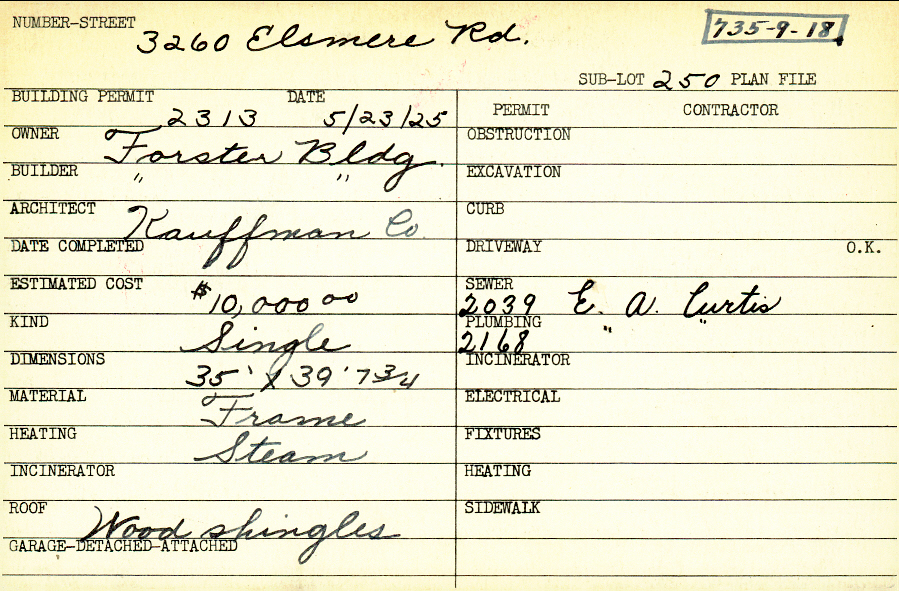 NUMBER-STREET 3260 Elsmere Rd. 735-9-18
SUB-LOT 250 PLAN FILE
BUILDING PERMIT 2313 DATE 5/23/25
PERMIT CONTRACTOR
OWNER Forster Bldg.
OBSTRUCTION
BUILDER " "
EXCAVATION
ARCHITECT Kauffman Co.
CURB
DATE COMPLETED
DRIVEWAY O.K.
ESTIMATED COST $10,000 00
SEWER 2039 E. A. Curtis
KIND Single
PLUMBING 2168 " "
DIMENSIONS 35' X 39' 7 3/4
INCINERATOR
MATERIAL Frame
ELECTRICAL
HEATING Steam
FIXTURES
INCINERATOR
HEATING
ROOF Wood shingles
SIDEWALK
GARAGE-DETACHED-ATTACHED